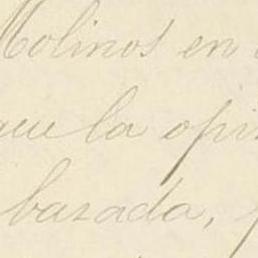 Molinos en
que la opi
basada,